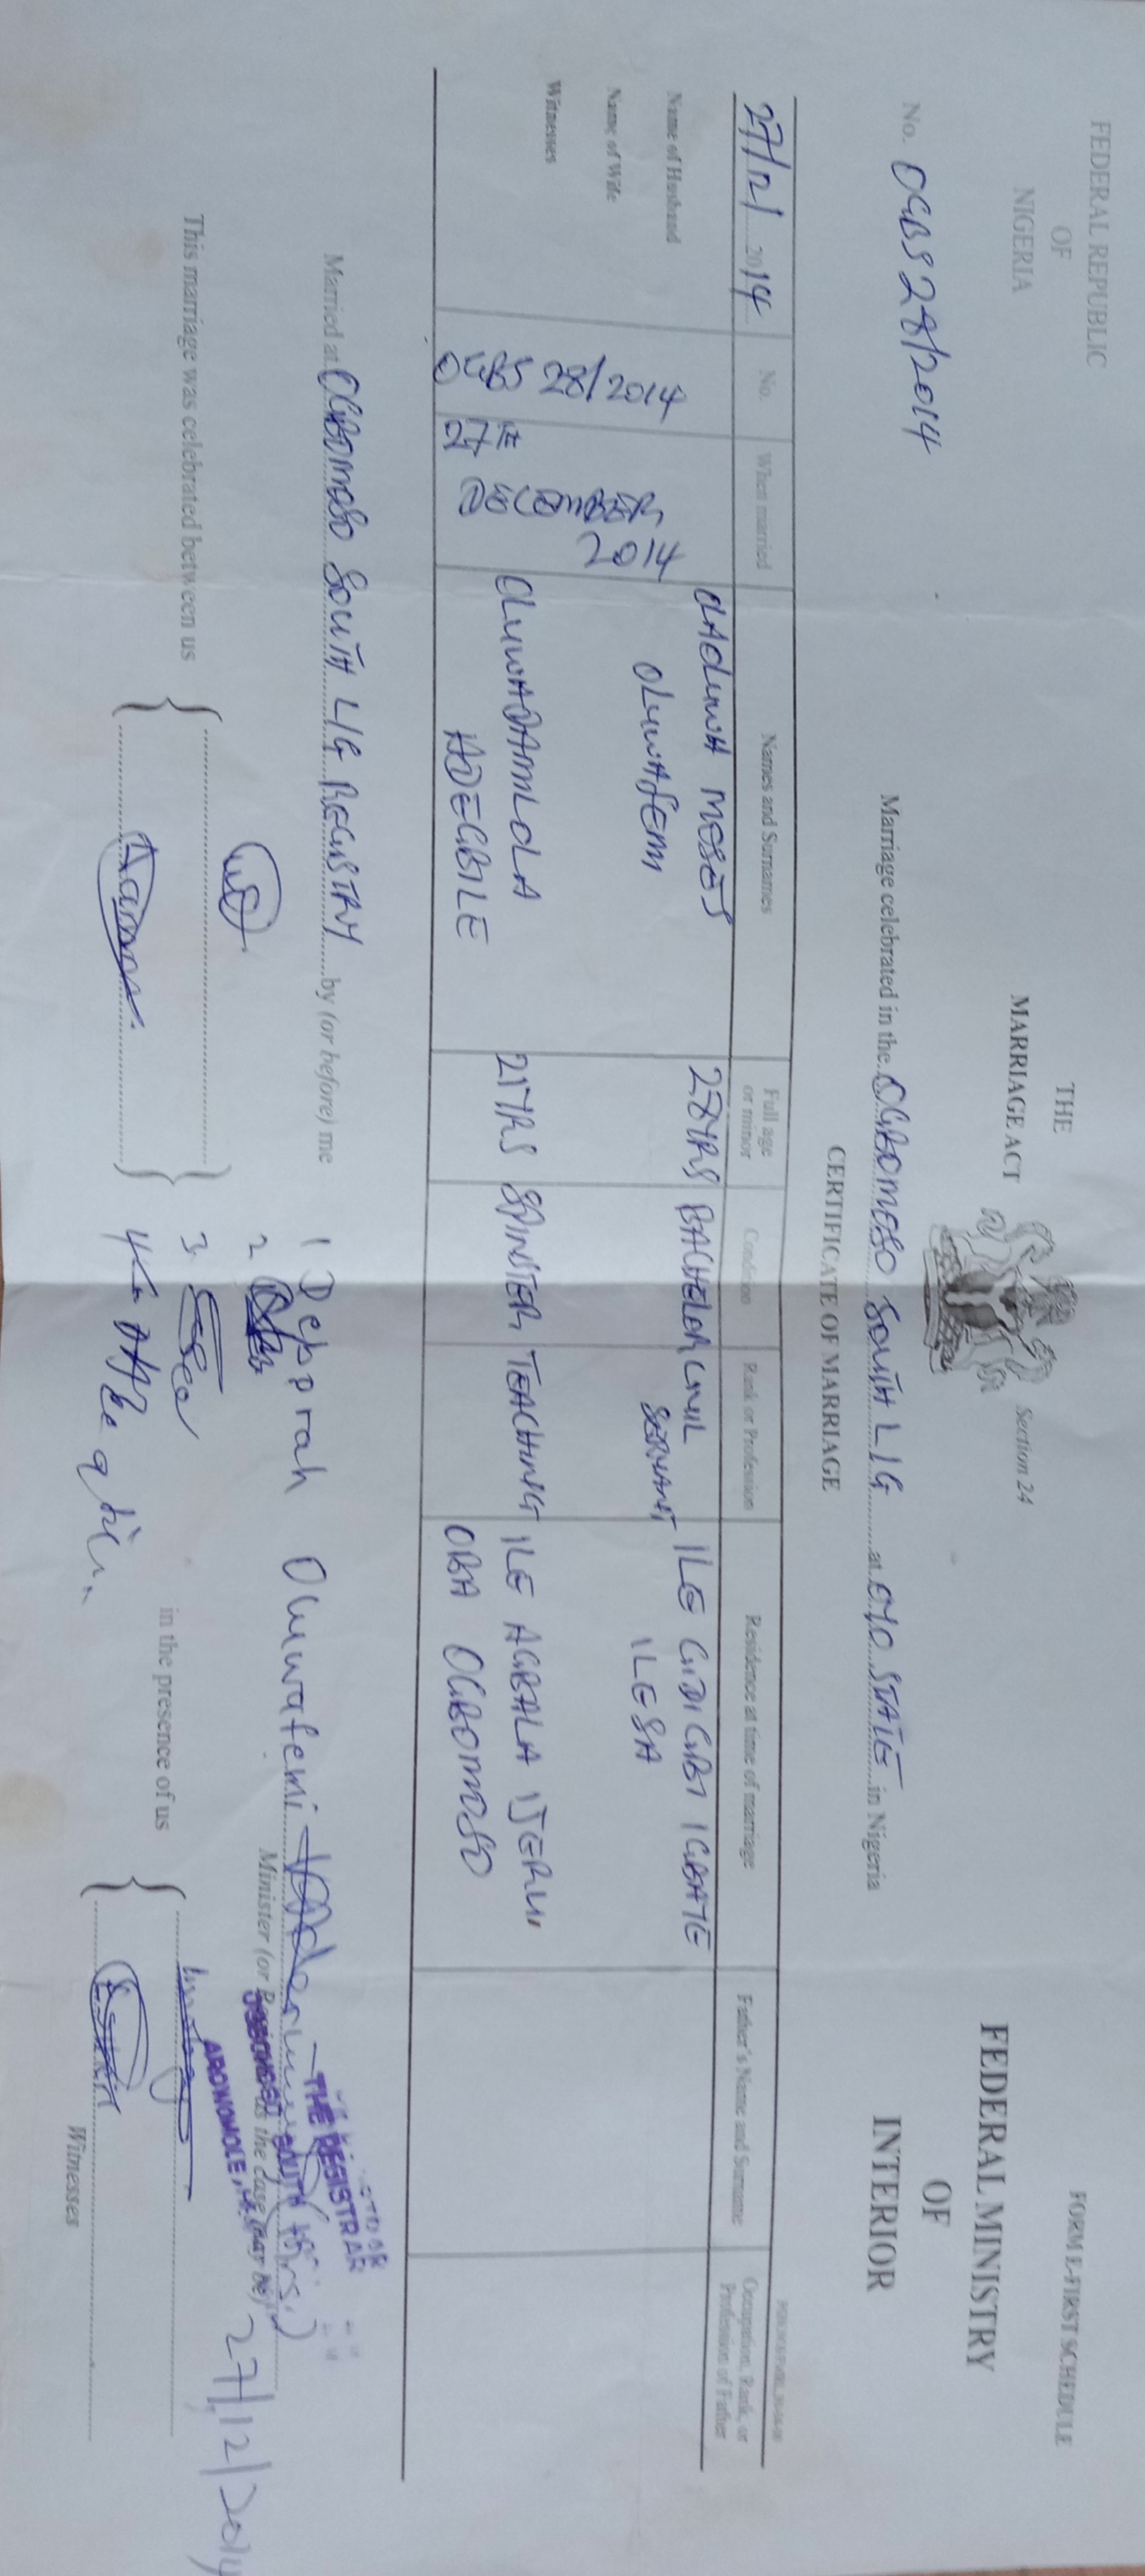 FEDERAL REPUBLIC
OF
NIGERIA
THE
MARRIAGE ACT
Section 24
FORM E-FIRST SCHEDULE
FEDERAL MINISTRY
OF
INTERIOR
No. OGBS 28/2014
Marriage celebrated in the OGBOMOSO SOUTH L/G at OYO STATE in Nigeria
CERTIFICATE OF MARRIAGE
27/12/ 2014
No.
When married
Names and Surnames
Full age
or minor
Condition
Rank or Profession
Residence at time of marriage
Father's Name and Surname
Occupation, Rank, or
Profession of Father
Name of Husband
Name of Wife
Witnesses
OGBS 28/2014
27TH
DECEMBER
2014
OLAOLUWA MOSES
OLUWAFEMI
27YRS
BACHELOR
CIVIL
SERVANT
ILE GIDIGBI IGBAYE
ILESA
OLUWADAMILOLA
ADEGBILE
21YRS
SPINSTER
TEACHING
ILE AGBALA IJERU
OBA OGBOMOSO
Married at OGBOMOSO SOUTH L/G REGISTRY by (or before) me
Minister (or Registrar as the case may be)
THE REGISTRAR
OGBOMOSO SOUTH
AROWOMOLE,
27/12/2014
This marriage was celebrated between us
1 Deborah Oluwafemi
2
3
4
in the presence of us
Witnesses